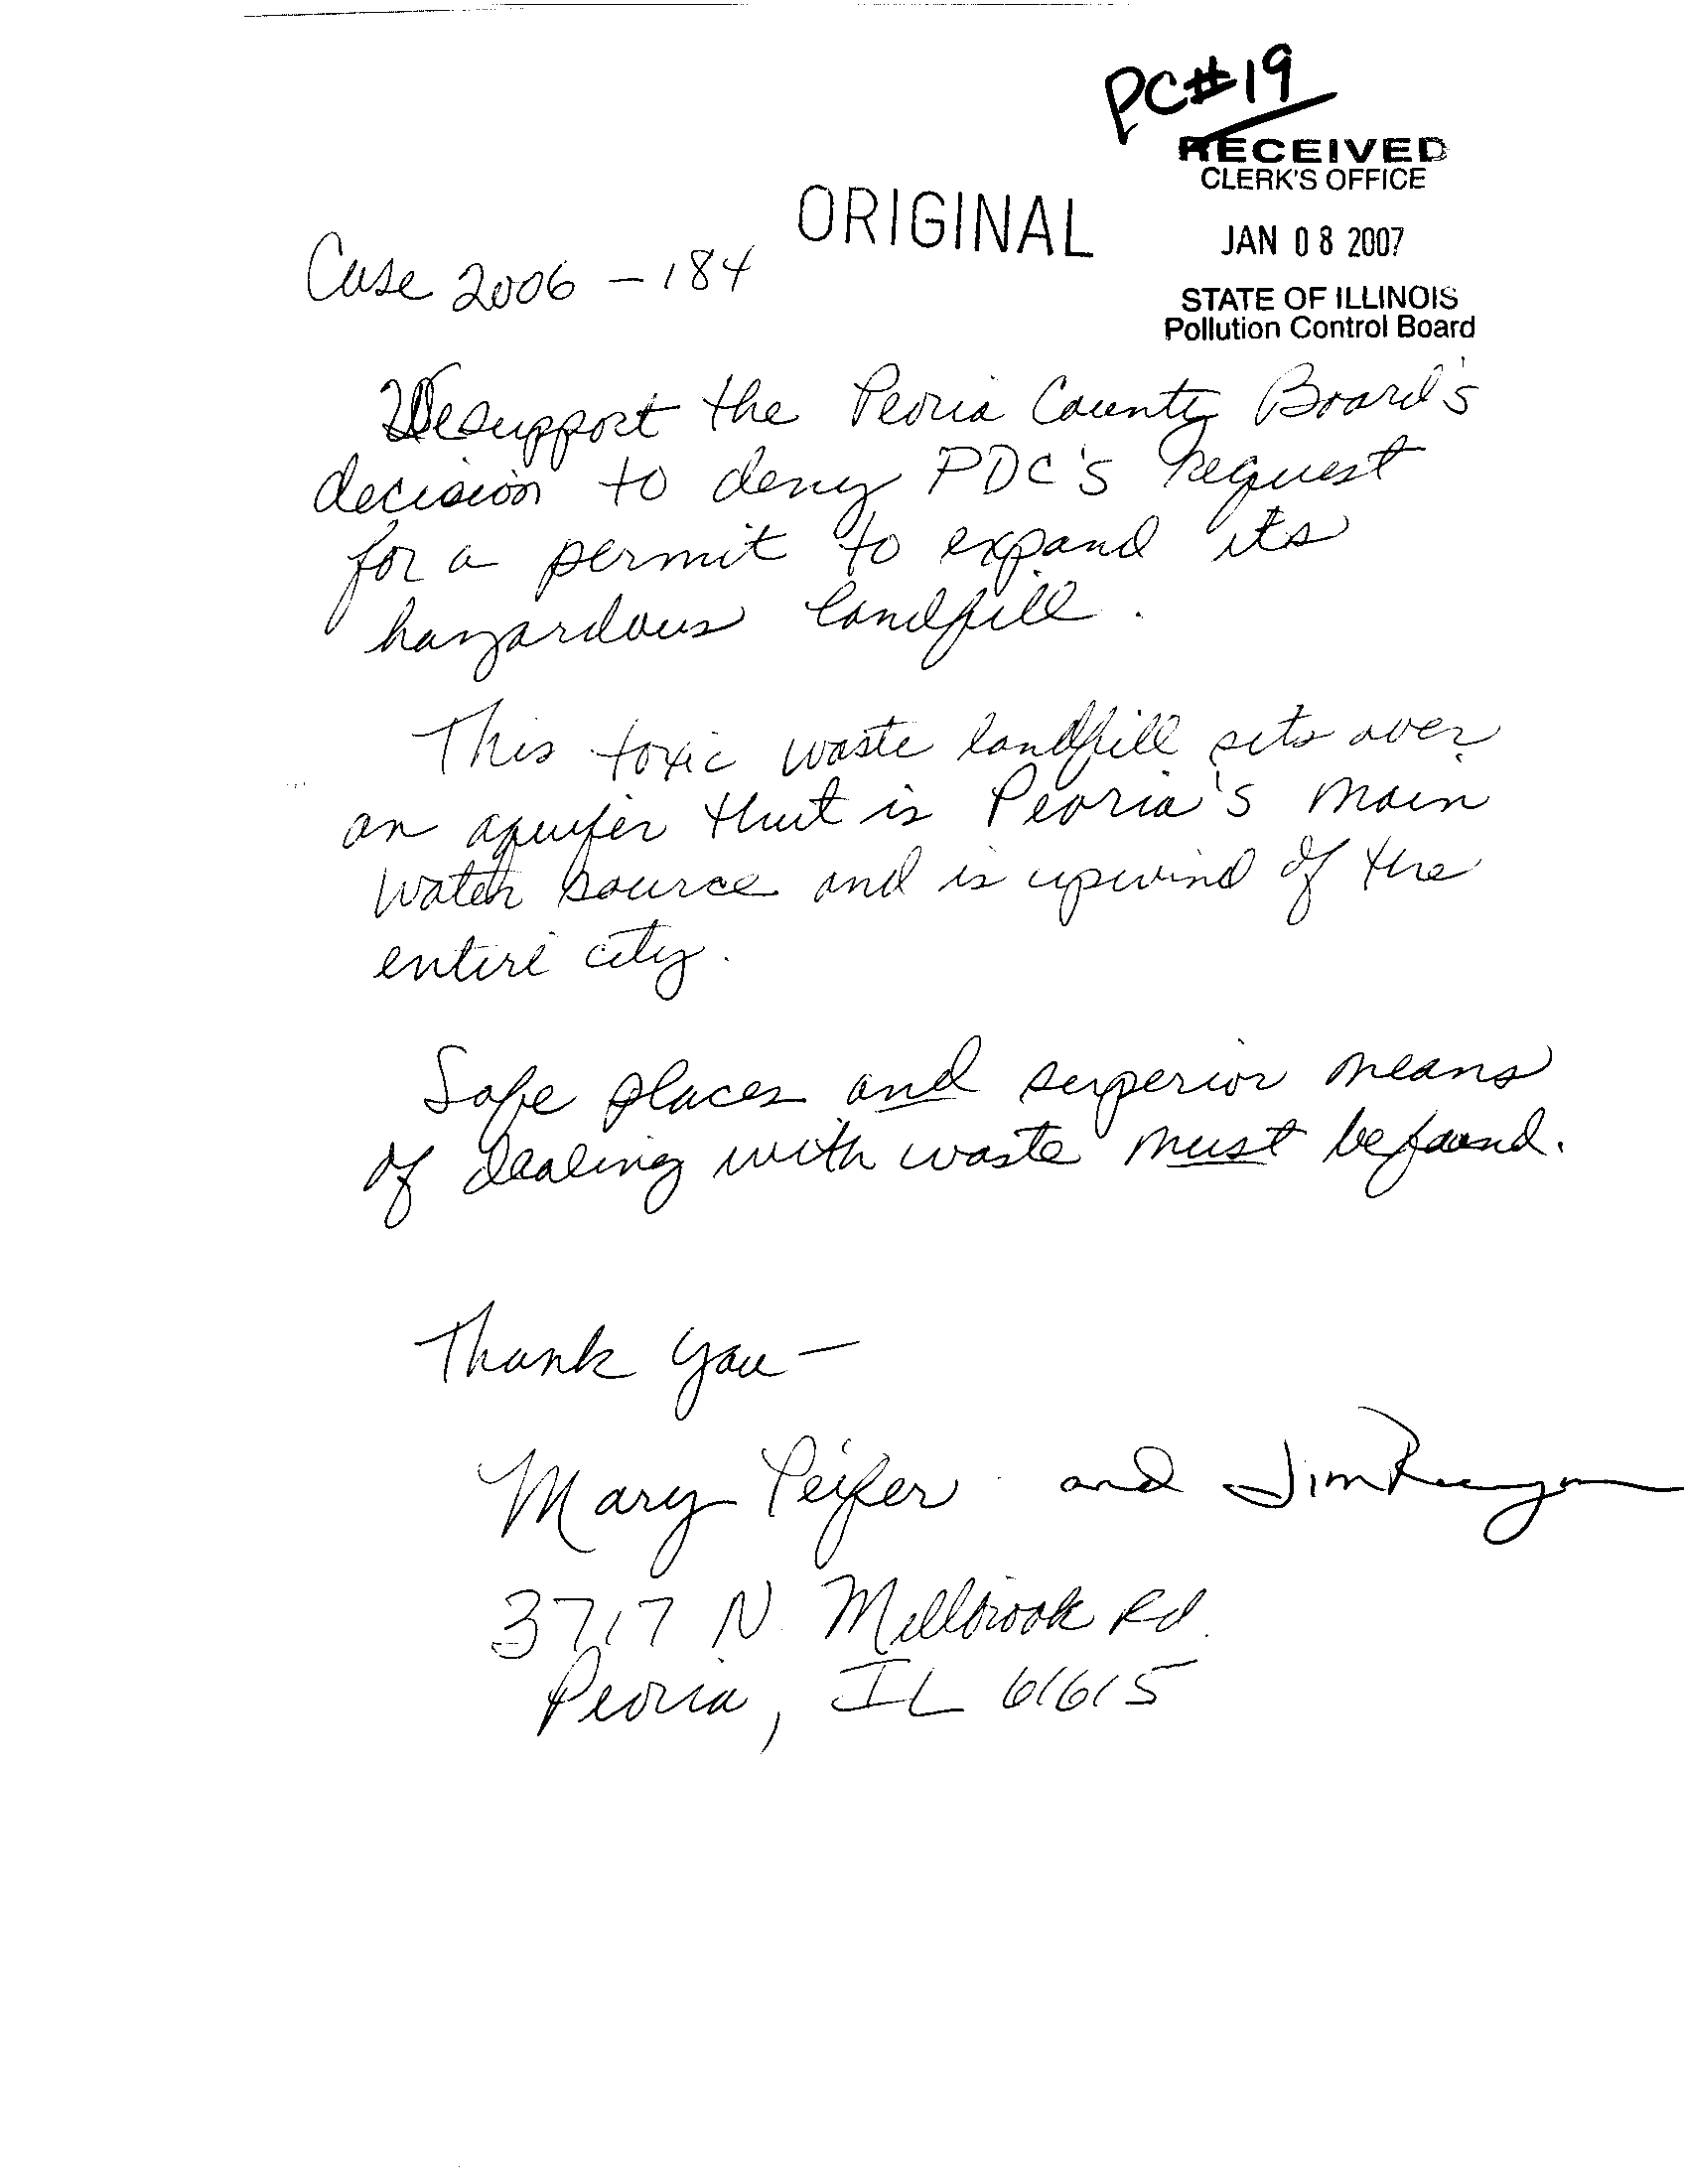 PC#19
RECEIVED
CLERK'S OFFICE
ORIGINAL
JAN 08 2007
Case 2006-184
STATE OF ILLINOIS
Pollution Control Board
We support the Peoria County Board's
decision to deny PDC's request
for a permit to expand its
hazardous landfill.
This toxic waste landfill sits over
an aquifer that is Peoria's main
water source and is upwind of the
entire city.
Safe places and superior means
of dealing with waste must be found.
Thank you—
Mary Peifer and Jim
3717 N. Millbrook Rd.
Peoria, IL 61615